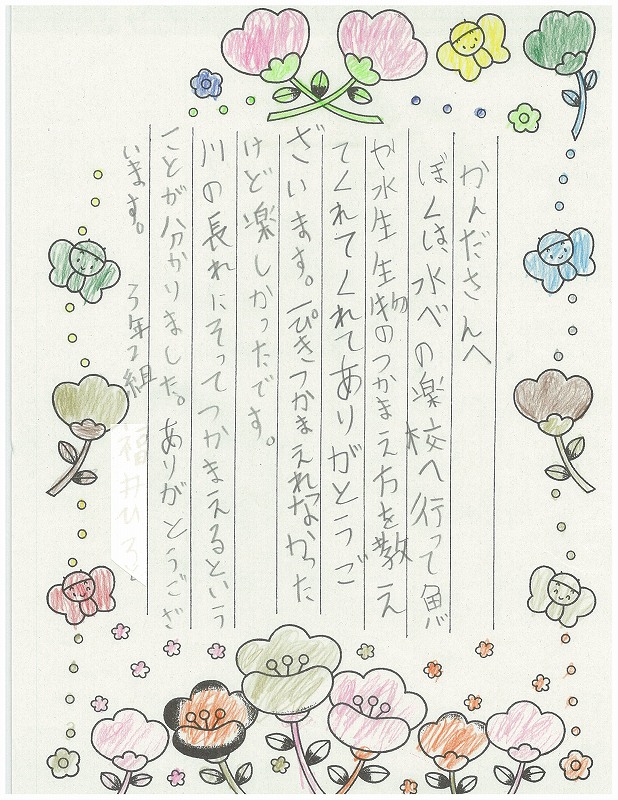 かんださんへ
ぼくは、水べの楽校へ行って魚
や水生生物のつかまえ方を教え
てくれてくれてありがとうご
ざいます。一ぴきつかまえれなかった
けど楽しかったです。
川の長れにそってつかまえるという
ことが分かりました。ありがとうござ
います。
3年2組